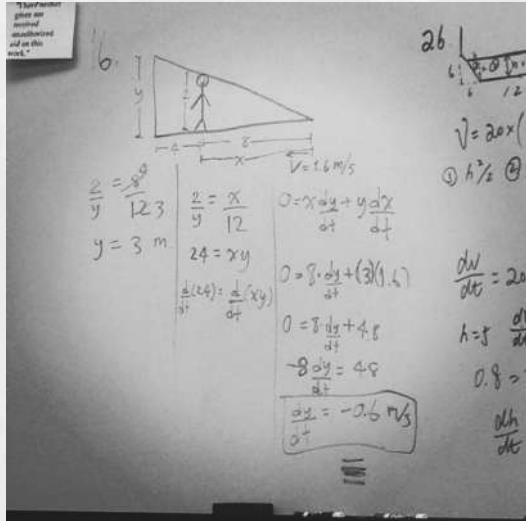 "I have neither
given nor
received
unauthorized
aid on this
work."
16.
y
2
4
8
x
V = 1.6 m/s
2/y = 8/12 3
y = 3 m
2/y = x/12
24 = xy
d/dt (24) = d/dt (xy)
0 = x dy/dt + y dx/dt
0 = 8 · dy/dt + (3)(1.6)
0 = 8 · dy/dt + 4.8
-8 dy/dt = 4.8
dy/dt = -0.6 m/s
26.
6
6
12
V = 20 × (
① h²/2 ②
dv/dt = 20
h = 5
0.8 =
dh/dt